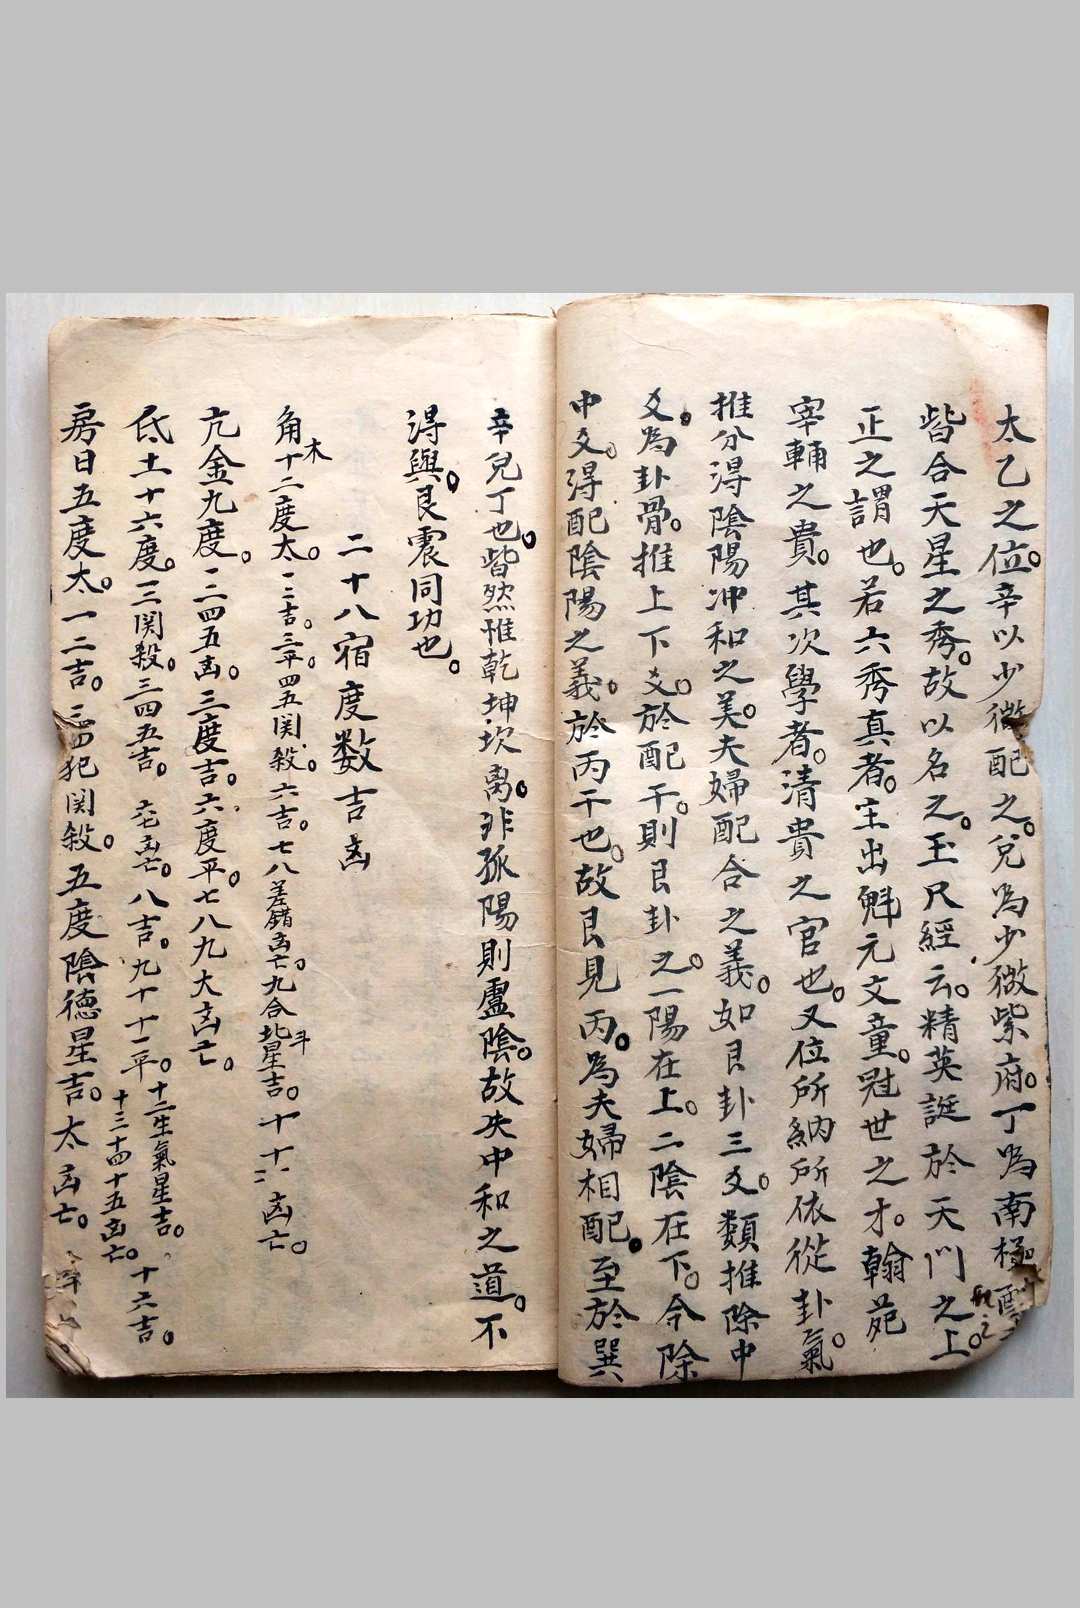 太乙之位。辛以少微配之。兌為少微紫府。丁為南極
皆合天星之秀。故以名之。玉尺經云。精英誕於天門之上。
正之謂也。若六秀真者。主出魁元文章。冠世之才。翰苑
宰輔之貴。其次學者。清貴之官也。又位所納所依從卦氣。
推分淂陰陽冲和之美。夫婦配合之義。如艮卦三爻。類推除中
爻。為卦骨。推上下爻。於配干。則艮卦之。一陽在上。二陰在下。今除
中爻。淂配陰陽之義。於丙干也。故艮見丙。為夫婦相配。至於巽
辛兌丁也。皆然惟乾坤坎离。非孤陽則虛陰。故失中和之道。不
淂與。艮震同功也。
二十八宿度数吉凶
角木十二度太。一二吉。三平。四五関殺。六吉。七八差錯凶亡。九合北斗星吉。十十一凶亡。
亢金九度。一二四五凶。三度吉。六度平。七八九大凶亡。
氐土十六度。一二関殺。三四五吉。六七凶亡。八吉。九十十一平。十二生氣星吉。十三十四十五凶亡。十六吉。
房日五度太。一二吉。三四犯関殺。五度陰德星吉。太凶亡。